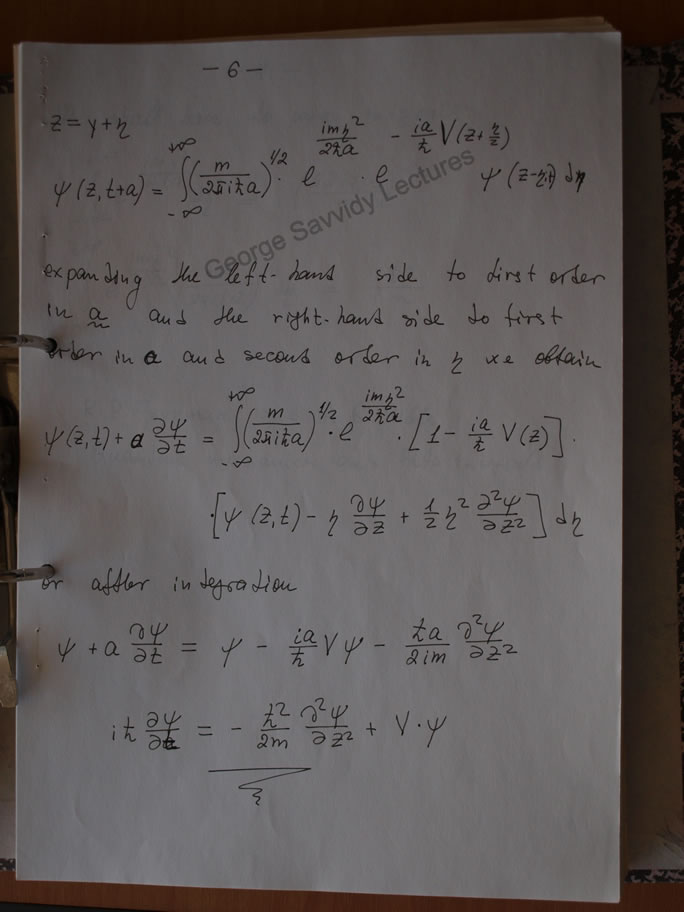 - 6 -
z = y + η
ψ(z, t+a) = ∫_{-∞}^{+∞} (m/2πiħa)^{1/2} · e^{imη²/2ħa} · e^{-ia/ħ V(z + η/2)} ψ(z-η,t) dη
George Savvidy Lectures
expanding the left-hand side to first order
in a and the right-hand side to first
order in a and second order in η we obtain
ψ(z,t) + a ∂ψ/∂t = ∫_{-∞}^{+∞} (m/2πiħa)^{1/2} · e^{imη²/2ħa} · [1 - ia/ħ V(z)] ·
· [ψ(z,t) - η ∂ψ/∂z + 1/2 η² ∂²ψ/∂z²] dη
or aftler integration
ψ + a ∂ψ/∂t = ψ - ia/ħ Vψ - ħa/2im ∂²ψ/∂z²
iħ ∂ψ/∂t = - ħ²/2m ∂²ψ/∂z² + V·ψ